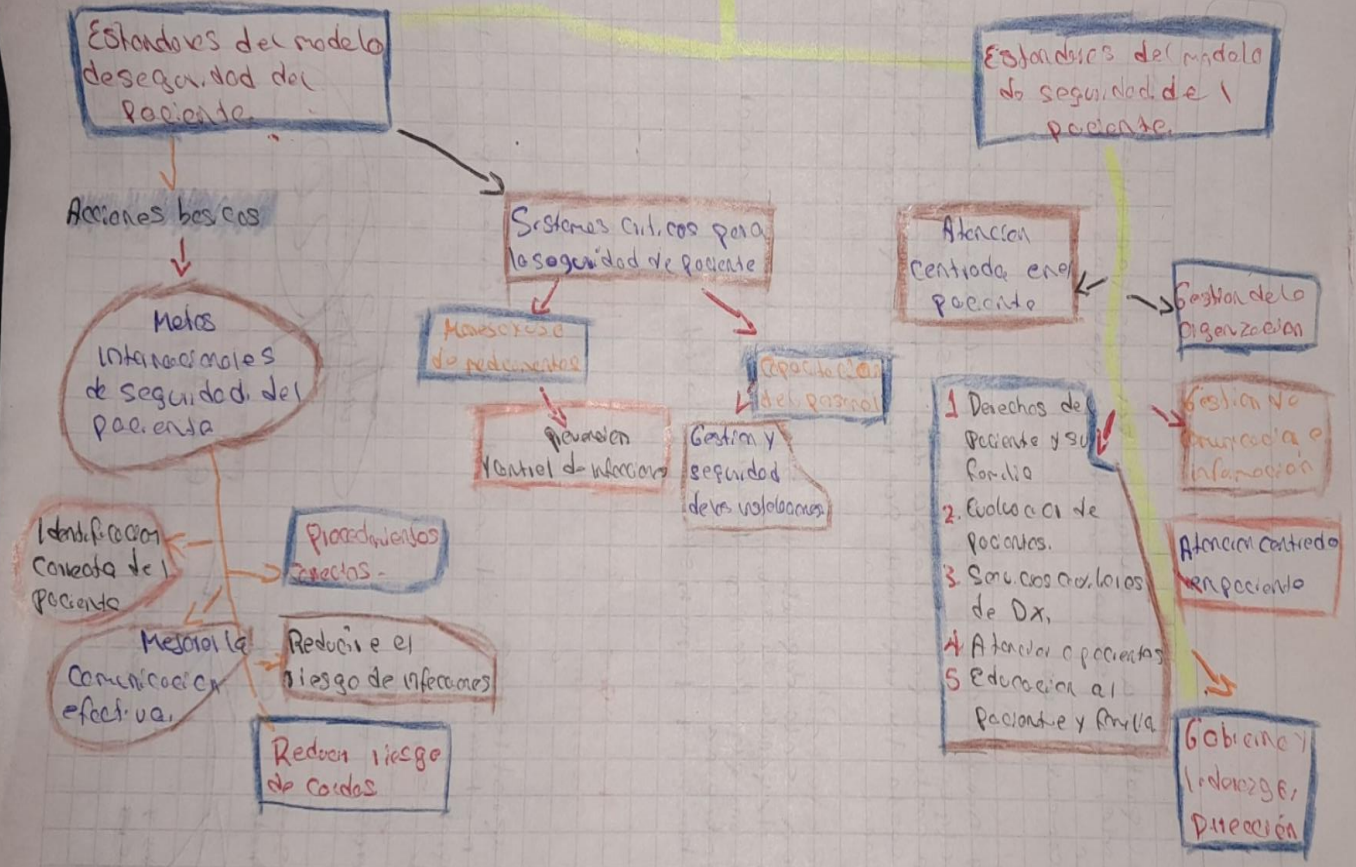 Estandares del modelo
de seguridad del
Paciente
Acciones basicas
Metas
internacionales
de seguridad del
paciente
Identificacion
correcta del
paciente
Procedimientos
correctos.
Mejorar la
Comunicacion
efectiva.
Reducir e el
riesgo de infecciones
Reducir riesgo
de caidas
Sistemas criticos para
la seguridad de paciente
de medicamentos
prevencion
y control de infeccion
Capacitacion
del personal
Gestion y
seguridad
de las
Estandares del modelo
de seguridad del
paciente
Atencion
centrada en el
paciente
Gestion de la
organizacion
Gestion de
comunicacion e
informacion
1 Derechos de
Paciente y su
familia
2. Evaluacion de
pacientes.
3. Servicios auxiliares
de Dx.
4 Atencion a pacientes
5 educacion al
paciente y familia
Atencion centrada
en paciente
Gobierno y
liderazgo,
Dirección